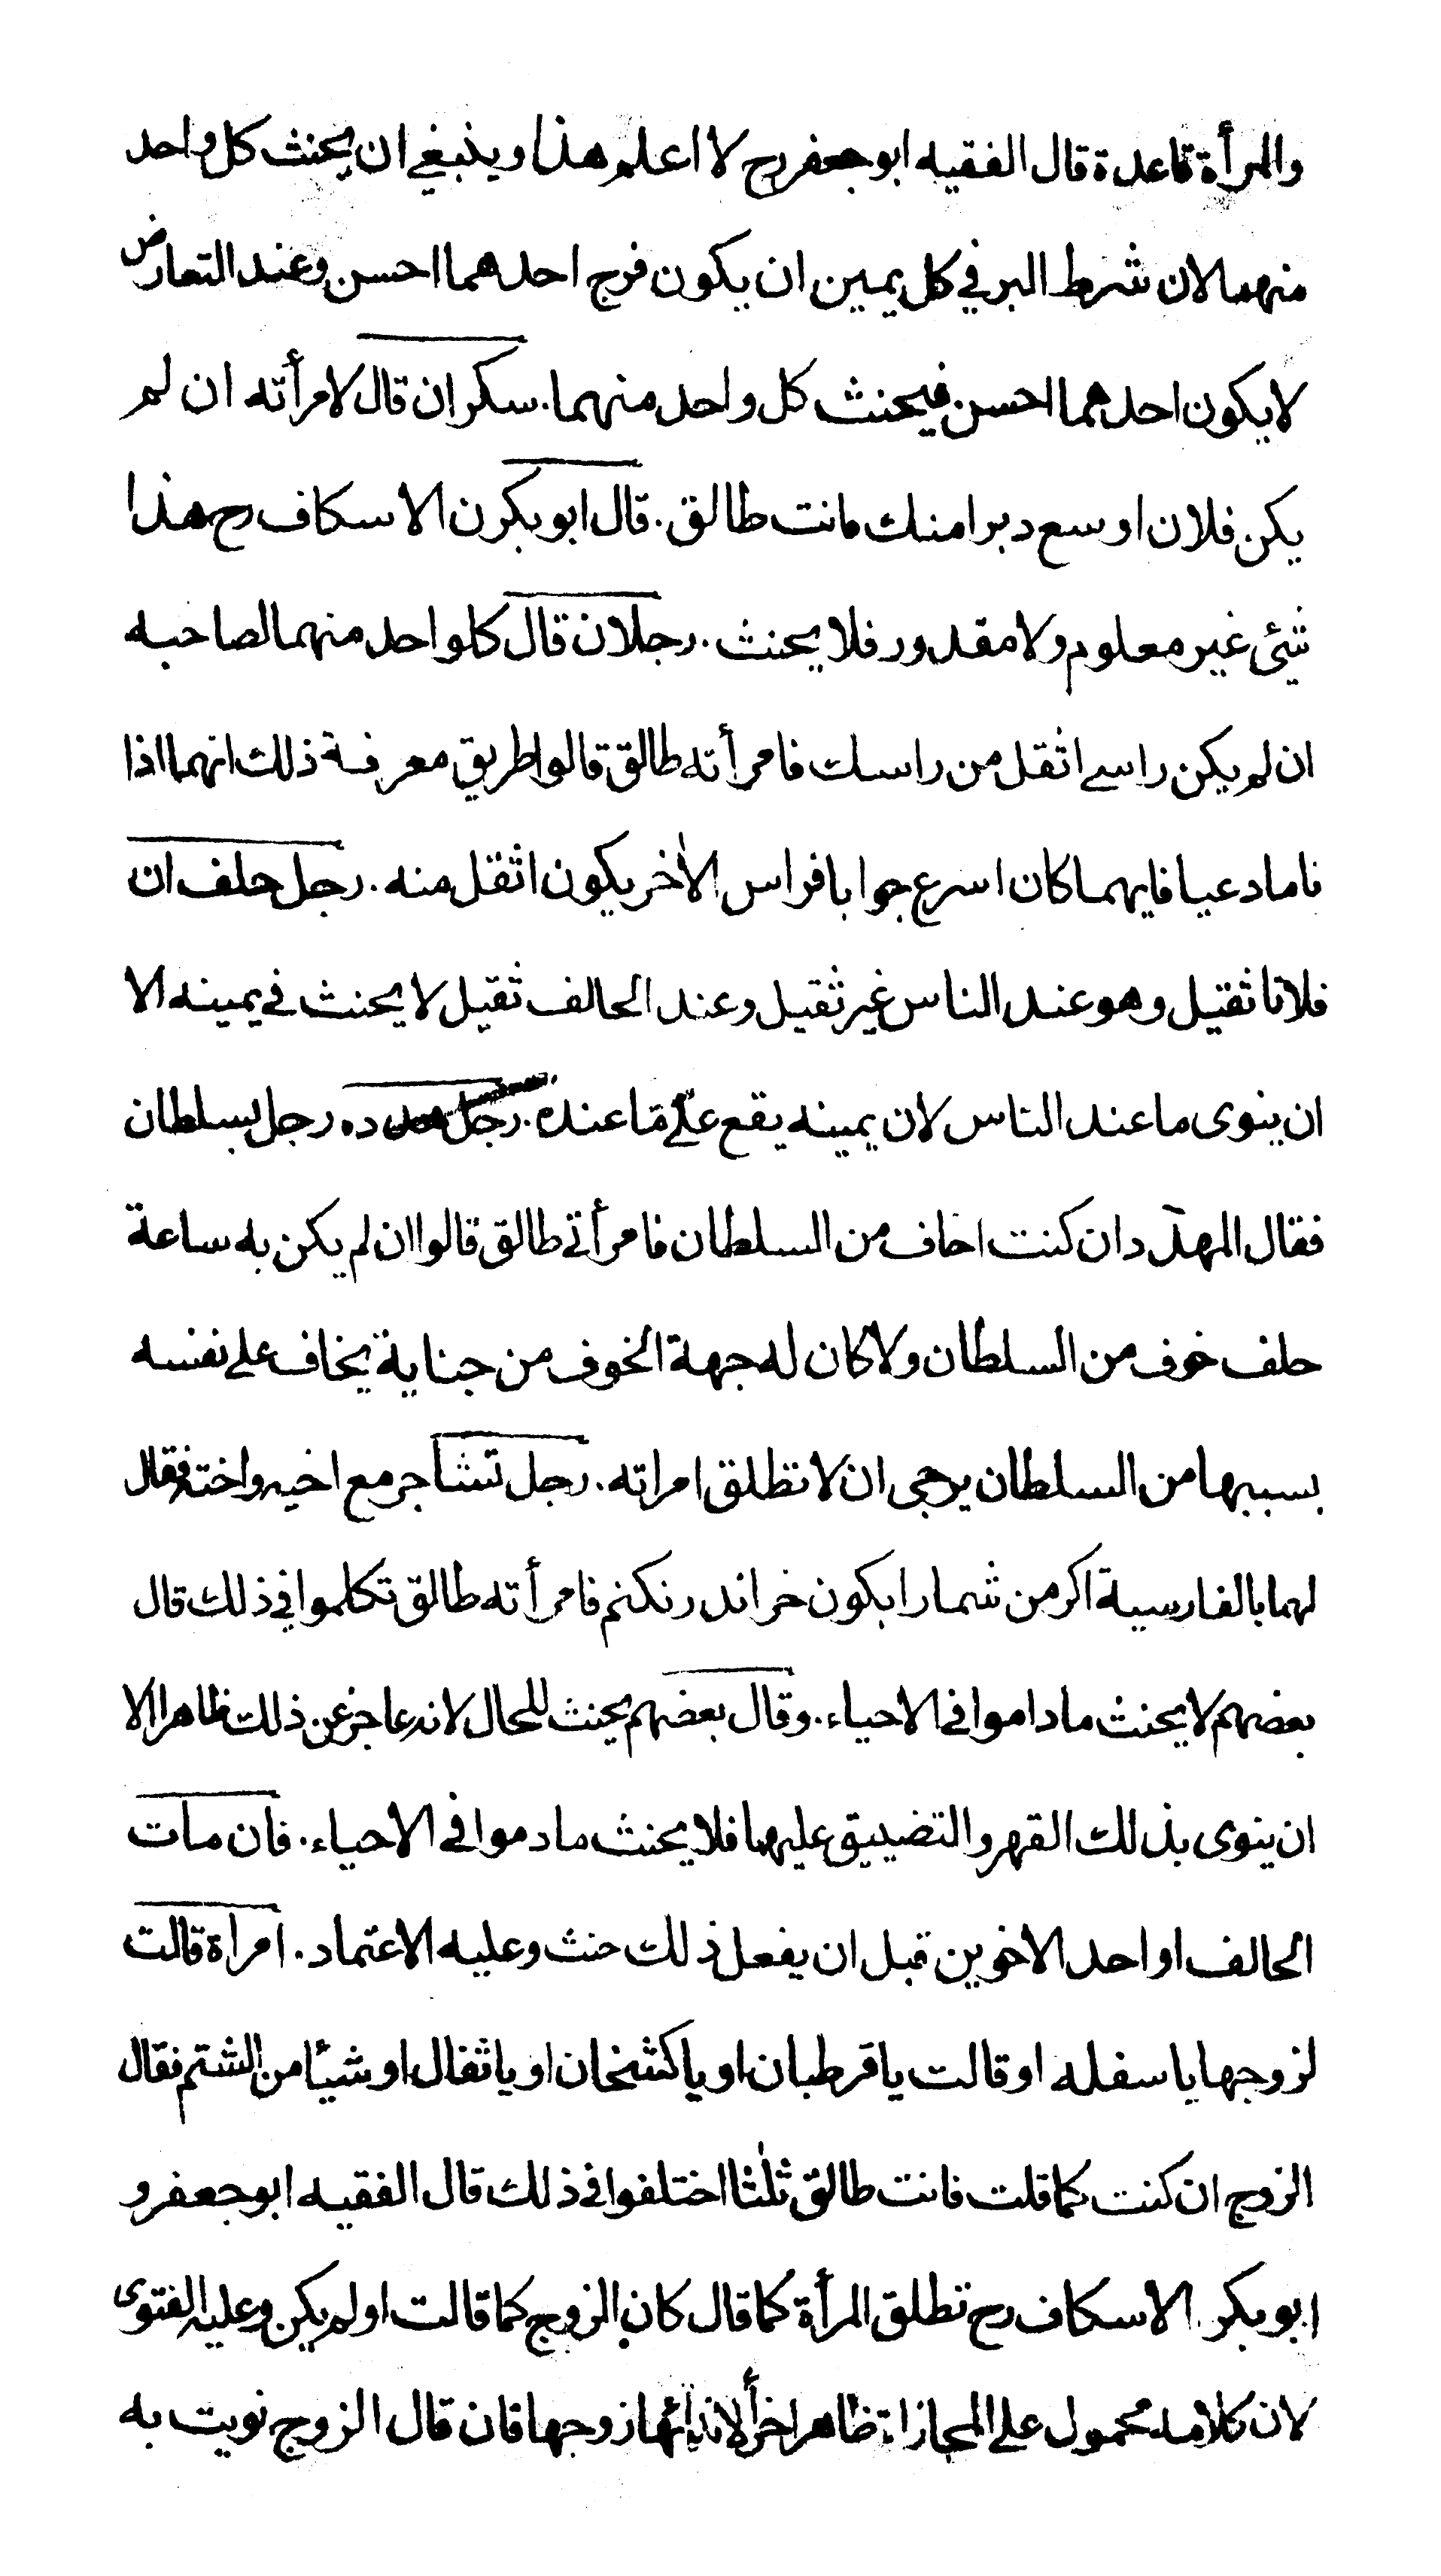 والمرأة قاعدة قال الفقيه ابوجعفر رح لا اعلم هذا وينبغي ان يحنث كل واحد
منهما لان شرط البر في كل يمين ان يكون فرج احدهما احسن وعند التعارض
لا يكون احدهما احسن فيحنث كل واحد منهما. سكران قال لامرأته ان لم
يكن فلان اوسع دبرا منك فانت طالق. قال ابو بكرن الاسكاف رح هذا
شئ غير معلوم ولا مقدور فلا يحنث. رجلان قال كلواحد منهما لصاحبه
ان لم يكن راسي اثقل من راسك فامرأته طالق قالوا طريق معرفة ذلك انهما اذا
ناما دعيا فايهما كان اسرع جوابا فراس الاٰخر يكون اثقل منه. رجل حلف ان
فلانا ثقيل وهو عند الناس غير ثقيل وعند الحالف ثقيل لا يحنث في يمينه الا
ان ينوى ما عند الناس لان يمينه يقع علے ما عنده. رجل ده رجل بسلطان
فقال المهدّد ان كنت اخاف من السلطان فامرأتي طالق قالوا ان لم يكن به ساعة
حلف خوف من السلطان ولا كان له جهة الخوف من جناية يخاف علے نفسه
بسببها من السلطان يرجى ان لا تطلق امراته. رجل تشاجر مع اخيه واخته فقال
لهما بالفارسية اكر من شمارا بكون خر اندر نكنم فامرأته طالق تكلموا في ذلك قال
بعضهم لا يحنث ما داموا في الاحياء. وقال بعضهم يحنث للحال لانه عاجز عن ذلك ظاهرا الا
ان ينوى بذلك القهر والتضييق عليهما فلا يحنث ما دموا في الاحياء. فان مات
الحالف او احد الاخوين قبل ان يفعل ذلك حنث وعليه الاعتماد. امراة قالت
لزوجها يا سفله او قالت يا قرطبان او يا كشخان او يا ثفال او شيئا من الشتم فقال
الزوج ان كنت كما قلت فانت طالق ثلٰثا اختلفوا في ذلك قال الفقيه ابو جعفر و
ابو بكر الاسكاف رح تطلق المرأة كما قال كان الزوج كما قالت او لم يكن وعليه الفتوى
لان كلامه محمول علے المجازاة ظاهرا زوجها فان قال الزوج نويت به